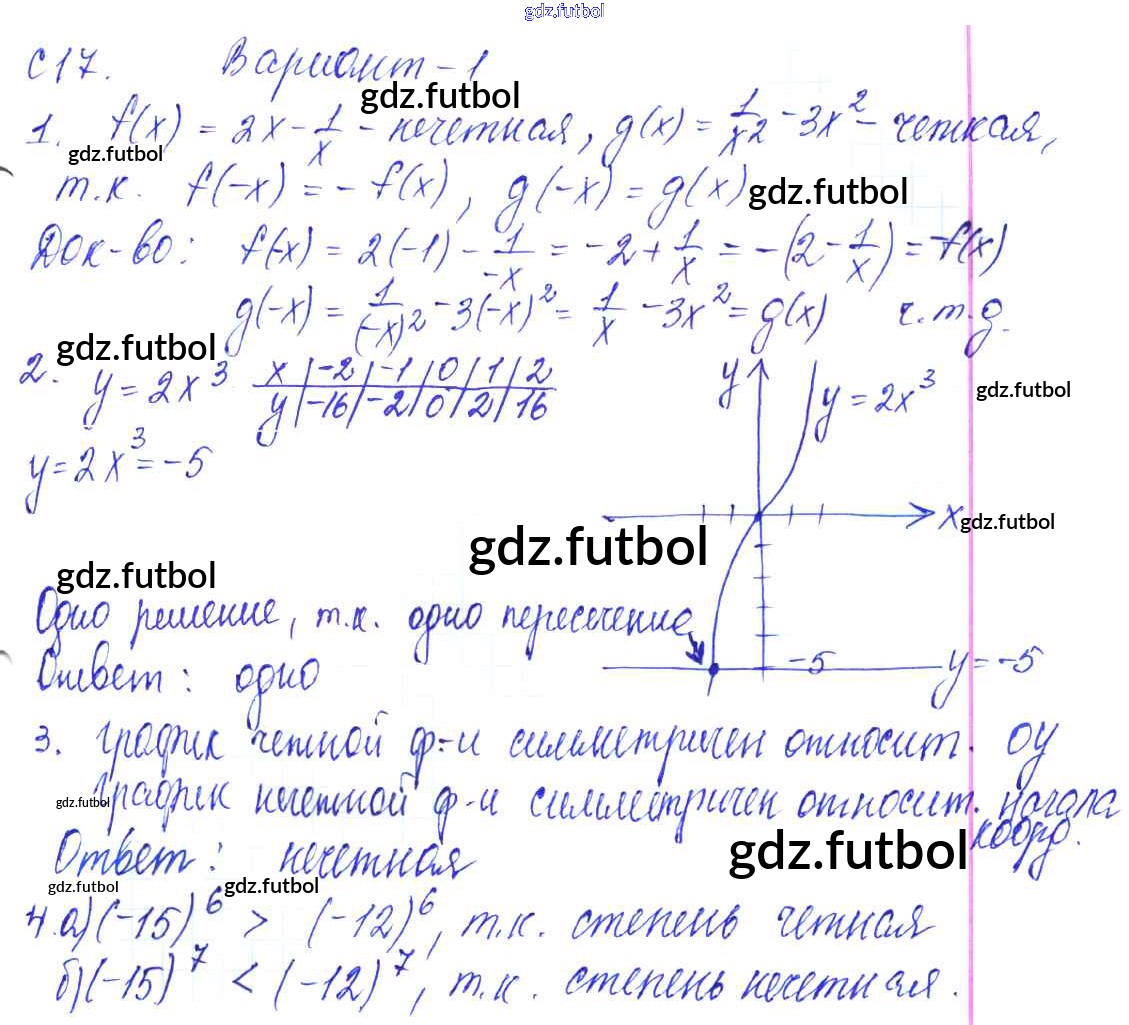 gdz.futbol
С17. Вариант-1
gdz.futbol
1. f(x) = 2x - 1/x - нечетная, g(x) = 1/x² - 3x² - четная,
gdz.futbol
т.к. f(-x) = - f(x), g(-x) = g(x)
gdz.futbol
Док-во: f(-x) = 2(-1) - 1/-x = -2 + 1/x = -(2 - 1/x) = -f(x)
g(-x) = 1/(-x)² - 3(-x)² = 1/x - 3x² = g(x) ч.т.д.
gdz.futbol
2. y = 2x³ x | -2 | -1 | 0 | 1 | 2
y | -16 | -2 | 0 | 2 | 16
y y = 2x³
gdz.futbol
y = 2x³ = -5
x
gdz.futbol
gdz.futbol
gdz.futbol
Одно решение, т.к. одно пересечение
Ответ: одно
-5 y = -5
3. График четной ф-и симметричен относит. OY
График нечетной ф-и симметричен относит. начала коорд.
gdz.futbol
gdz.futbol
Ответ: нечетная
gdz.futbol
gdz.futbol
4. а) (-15)⁶ > (-12)⁶, т.к. степень четная
б) (-15)⁷ < (-12)⁷, т.к. степень нечетная.